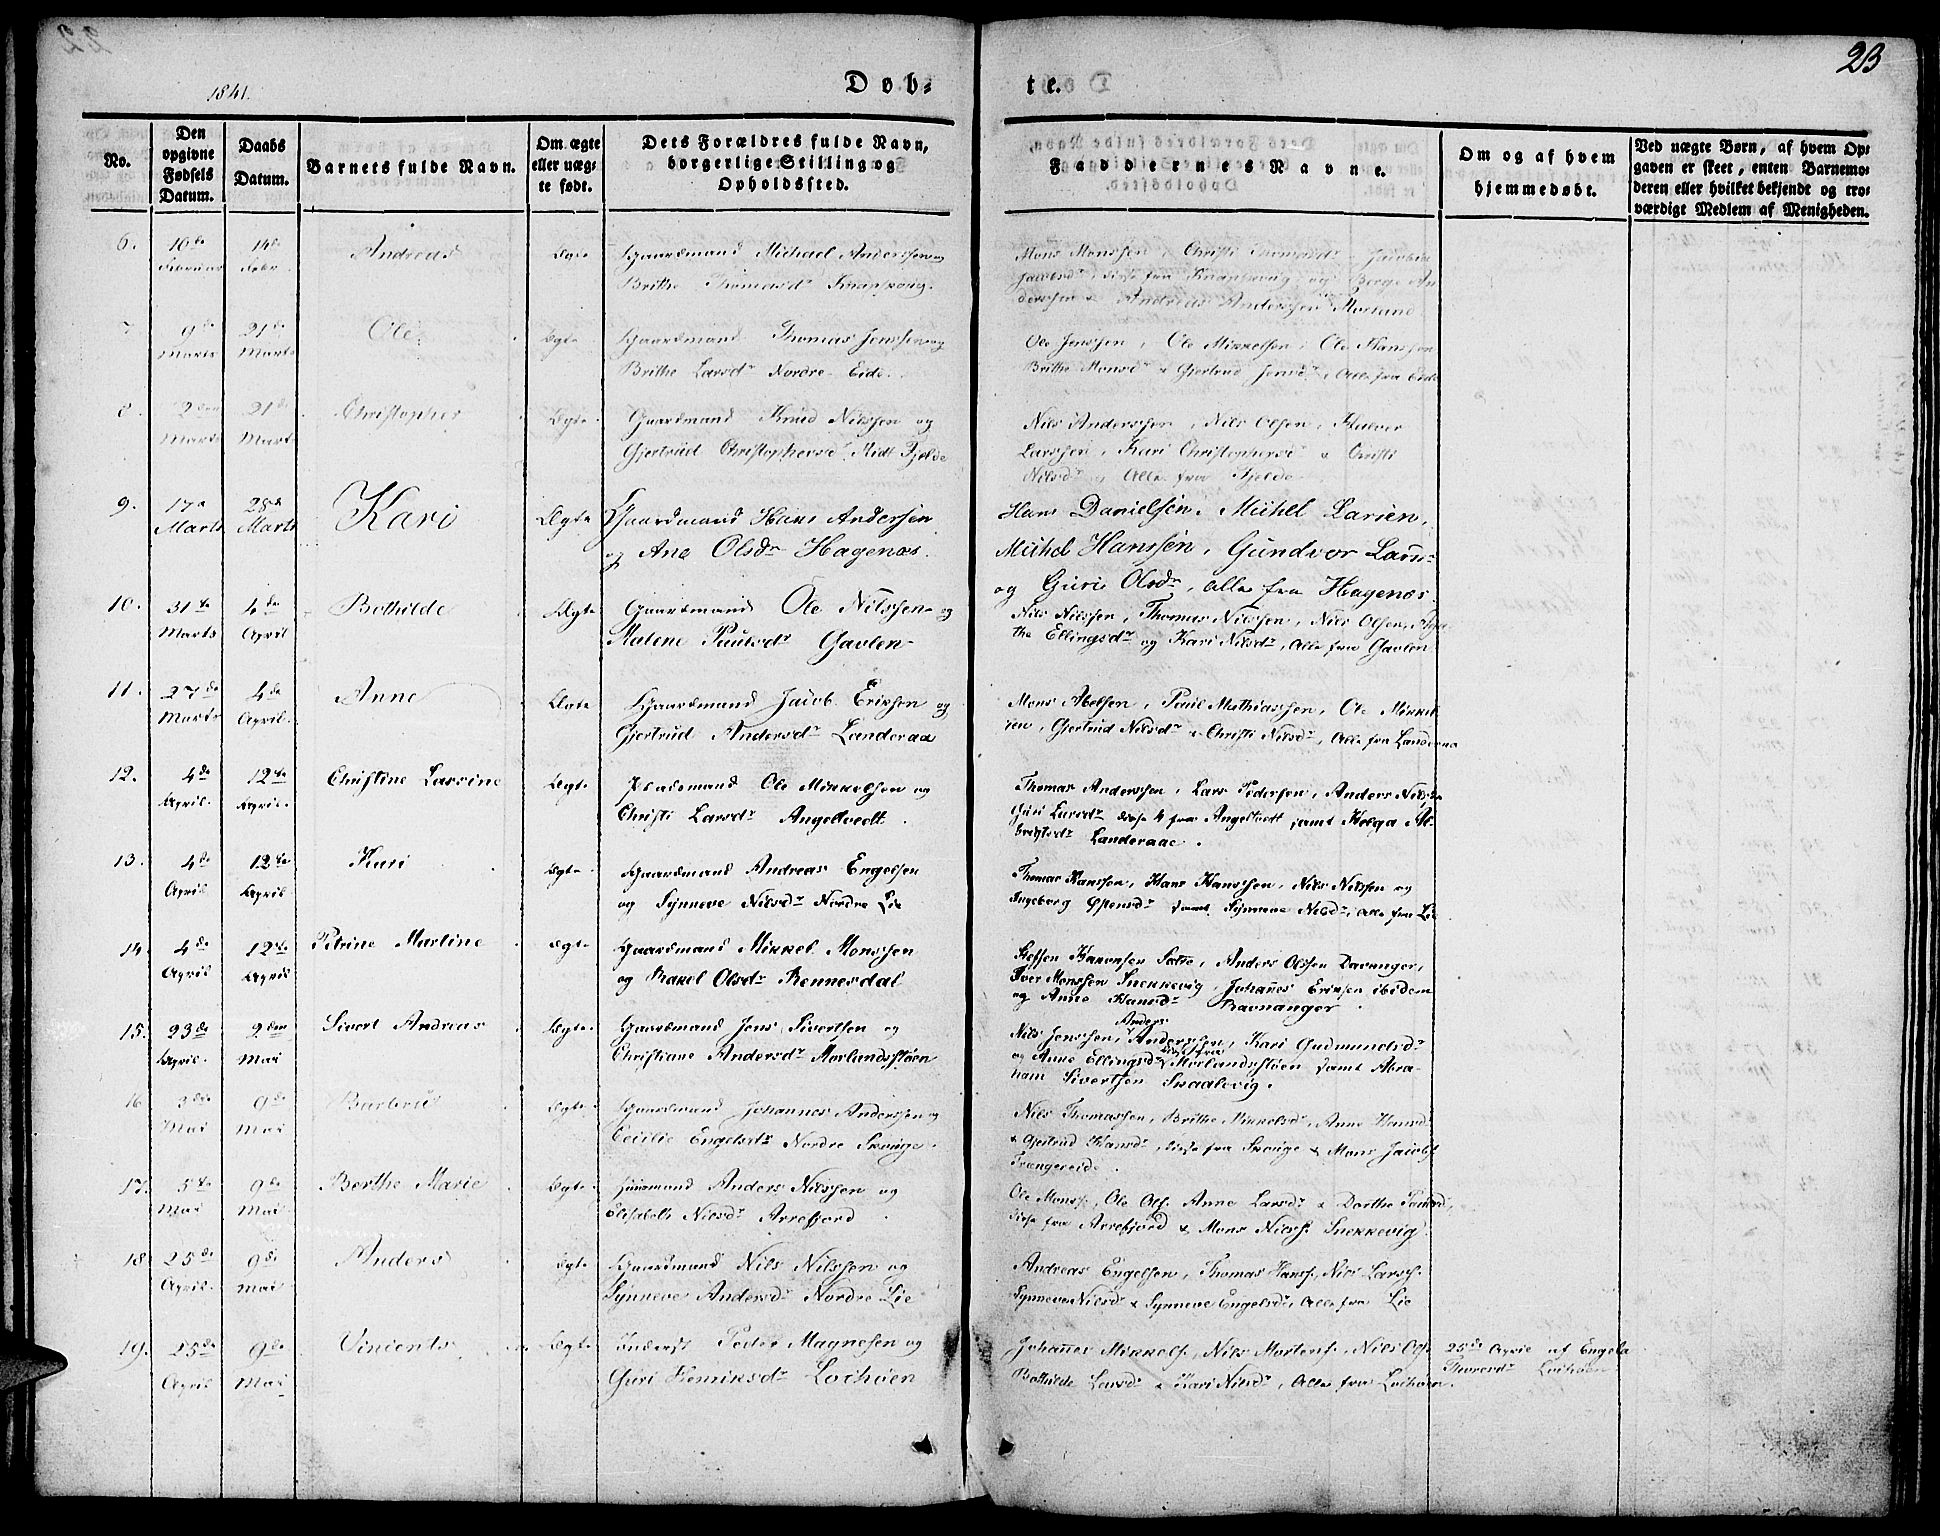 1841.
Døb-
te.
23
No.
Den opgivne Fødsels Datum.
Daabs Datum.
Barnets fulde Navn.
Om ægte eller uægte født.
Dets Forældres fulde Navn, borgerlige Stilling og Opholdssted.
Faddernes Navne.
Om og af hvem hjemmedøbt.
Ved uægte Børn, af hvem Opgaven er skeet, enten Barnemoderen eller hvilket bekjendt og troværdigt Medlem af Menigheden.
6. 10de Februar 14de Febr. Andreas Ægte Gaardmand Michael Anderssen og
Brithe Thomasdr
Mons Monssen, Christi Thomasdr
disse fra og Børge An-
derssen & Andreas Anderssen Morland
7. 9de Marts 21de Marts Ole Ægte Gaardmand Thomas Jenssen og
Brithe Larsdr Nordre Eide.
Ole Jenssen, Ole Mikkelsen, Ole Hanssen
Brithe Monsdr & Gjertrud Jensdr, Alle fra Eide
8. 2den Marts 21de Marts Christopher Ægte Gaardmand Knud Nilssen og
Gjertrud Christophersdr Midt Fjelde
Nils Anderssen, Nils Olsen, Halvor
Larssen, Kari Christophersdr & Christi
Nilsdr Alle fra Fjelde
9. 17de Marts 28de Marts Kari Ægte Gaardmand Hans Andersen
og Ane Olsdr Hagenæs.
Hans Danielsen, Michel Larsen,
Michel Hanssen, Gundvor Larsdr
og Guri Olsdr, alle fra Hagenæs.
10. 31te Marts 4de April Bothilde Ægte Gaardmand Ole Nilssen og
Malene Paulsdr Gavlen
Nils Nilssen, Thomas Nilssen, Nils Olsen,
the Ellingsdr og Kari Nilsdr, Alle fra Gavlen
11. 27de Marts 4de April Anne Ægte Gaardmand Jacob Eriksen og
Gjertrud Andersdr Landeraa
Mons Abelsen, Paul Mathiassen, Ole Mikkel-
sen, Gjertrud Nilsdr & Christi Nilsdr, Alle fra Landeraa
12. 4de April 12te April Christine Larsine Ægte Pladsmand Ole Mikkelsen og
Christi Larsdr Angeltvedt.
Thomas Anderssen, Lars Pedersen, Anders Nilssen
Guri Larsdr disse 4 fra Angeltvedt samt Helga Al-
brigtsdr Landeraae.
13. 4de April 12te April Kari Ægte Gaardmand Andreas Engelsen
og Synneve Nilsdr Nordre Lie
Thomas Hanssen, Hans Hanssen, Nils Nilssen og
Ingeborg Østensdr samt Synneve Nilsdr, Alle fra Lie
14. 4de April 12te April Petrine Martine Ægte Gaardmand Mikkel Monssen
og Rakel Olsdr Rennesdal
Steffen Sætre, Anders Olssen Davanger,
Iver Monssen Snekkevig, Johannes Eriksen ibidem
og Anne Hansdr Ravnanger.
15. 23de April. 2den Mai Sivert Andreas Ægte Gaardmand Jens Sivertsen og
Christiane Andersdr Morlandsstøen
Nils Jenssen, Anders Anderssen, Kari Gudmundsdr
og Anne Ellingsdr disse fra Morlandsstøen samt Abra-
ham Sivertsen Skaalevig.
16 3die Mai 9de Mai Barbru Ægte Gaardmand Johannes Anderssen og
Cecilie Engelsdr Nordre Skouge.
Nils Thomassen, Brithe Mikkelsdr, Anne Hansdr
& Gjertrud Hansdr, disse fra Skouge & Mons Jacobs.
Trængereide.
17. 5te Mai 9de Mai Berthe Marie Ægte Huusmand Anders Nilssen og
Elisabeth Nilsdr Arrefjord.
Ole Monss, Ole Ols. Anne Larsdr & Dorthe
disse fra Arrefjord & Mons Nilss. Snekkevig
18. 25de April 9de Mai Anders Ægte Gaardmand Nils Nilssen og
Synneve Andersdr Nordre Lie
Andreas Engelsen, Thomas Hanss, Nils Larss.
Synneve Nilsdr & Synneve Engelsdr, Alle fra Lie
19. 25de April 9de Mai Vincents Ægte Inderst Peder Magnesen og
Guri Henriksdr Loihoen
Johannes Mikkels, Nils Mortens, Nils Ols
Bothilde & Kari Nilsdr, Alle fra Loihoen.
25de April af Engela
Thoresdr Loihoen